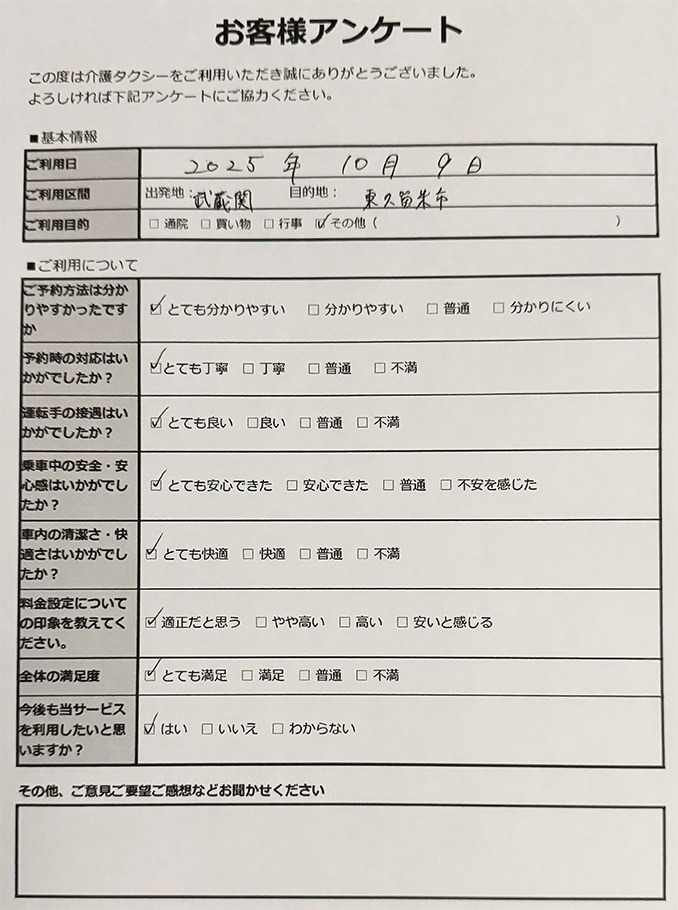 お客様アンケート
この度は介護タクシーをご利用いただき誠にありがとうございました。
よろしければ下記アンケートにご協力ください。
■基本情報
ご利用日 2025 年 10 月 9 日
ご利用区間 出発地：武蔵関 目的地：東久留米市
ご利用目的 □ 通院 □ 買い物 □ 行事 ☑ その他（ ）
■ご利用について
ご予約方法は分か
りやすかったです
か
☑ とても分かりやすい □ 分かりやすい □ 普通 □ 分かりにくい
予約時の対応はい
かがでしたか？
☑とても丁寧 □ 丁寧 □ 普通 □ 不満
運転手の接遇はい
かがでしたか？
☑ とても良い □良い □ 普通 □ 不満
乗車中の安全・安
心感はいかがでし
たか？
☑ とても安心できた □ 安心できた □ 普通 □ 不安を感じた
車内の清潔さ・快
適さはいかがでし
たか？
☑ とても快適 □ 快適 □ 普通 □ 不満
料金設定について
の印象を教えてく
ださい。
☑ 適正だと思う □ やや高い □ 高い □ 安いと感じる
全体の満足度 ☑ とても満足 □ 満足 □ 普通 □ 不満
今後も当サービス
を利用したいと思
いますか？
☑ はい □ いいえ □ わからない
その他、ご意見ご要望ご感想などお聞かせください